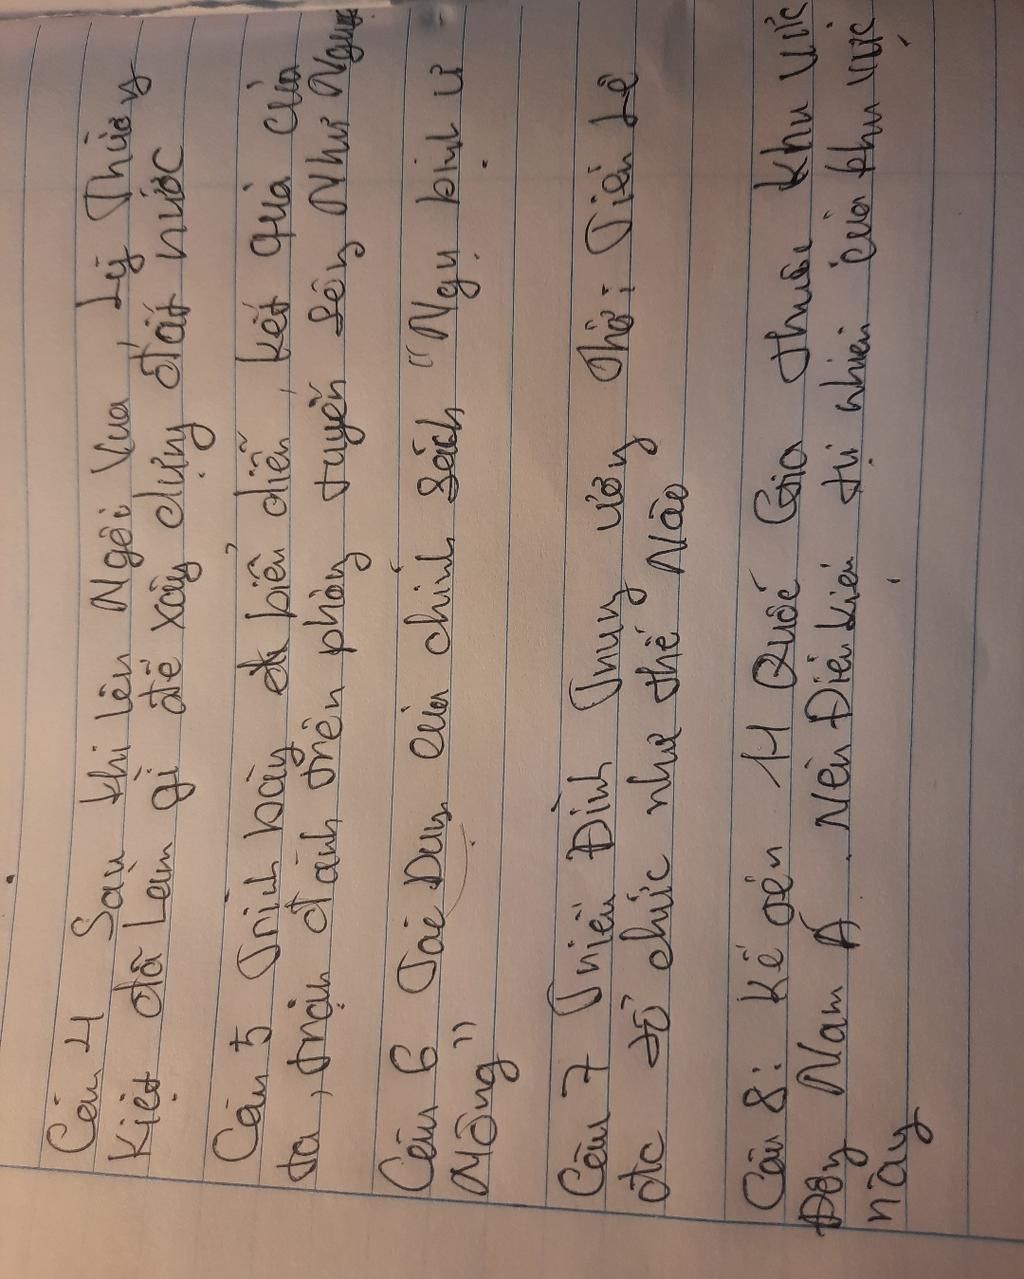 Câu 4 Sau khi lên Ngôi Vua, Lý Thường
Kiệt đã Làm gì để xây dựng đất nước
Câu 5 Trình bày biển diễn, kết quả của
ta, trận đánh trên phòng tuyến sông Như Nguyệt
Câu 6 Tác Dụng của chính sách "Ngụ binh ư
Nông"
Câu 7 Triều Đình Trung ương Thời Tiền Lê
đc tổ chức như thế Nào
Câu 8: Kể tên 11 Quốc Gia thuộc khu vực
Đông Nam Á. Nêu Điều kiện tự nhiên của khu vực
này